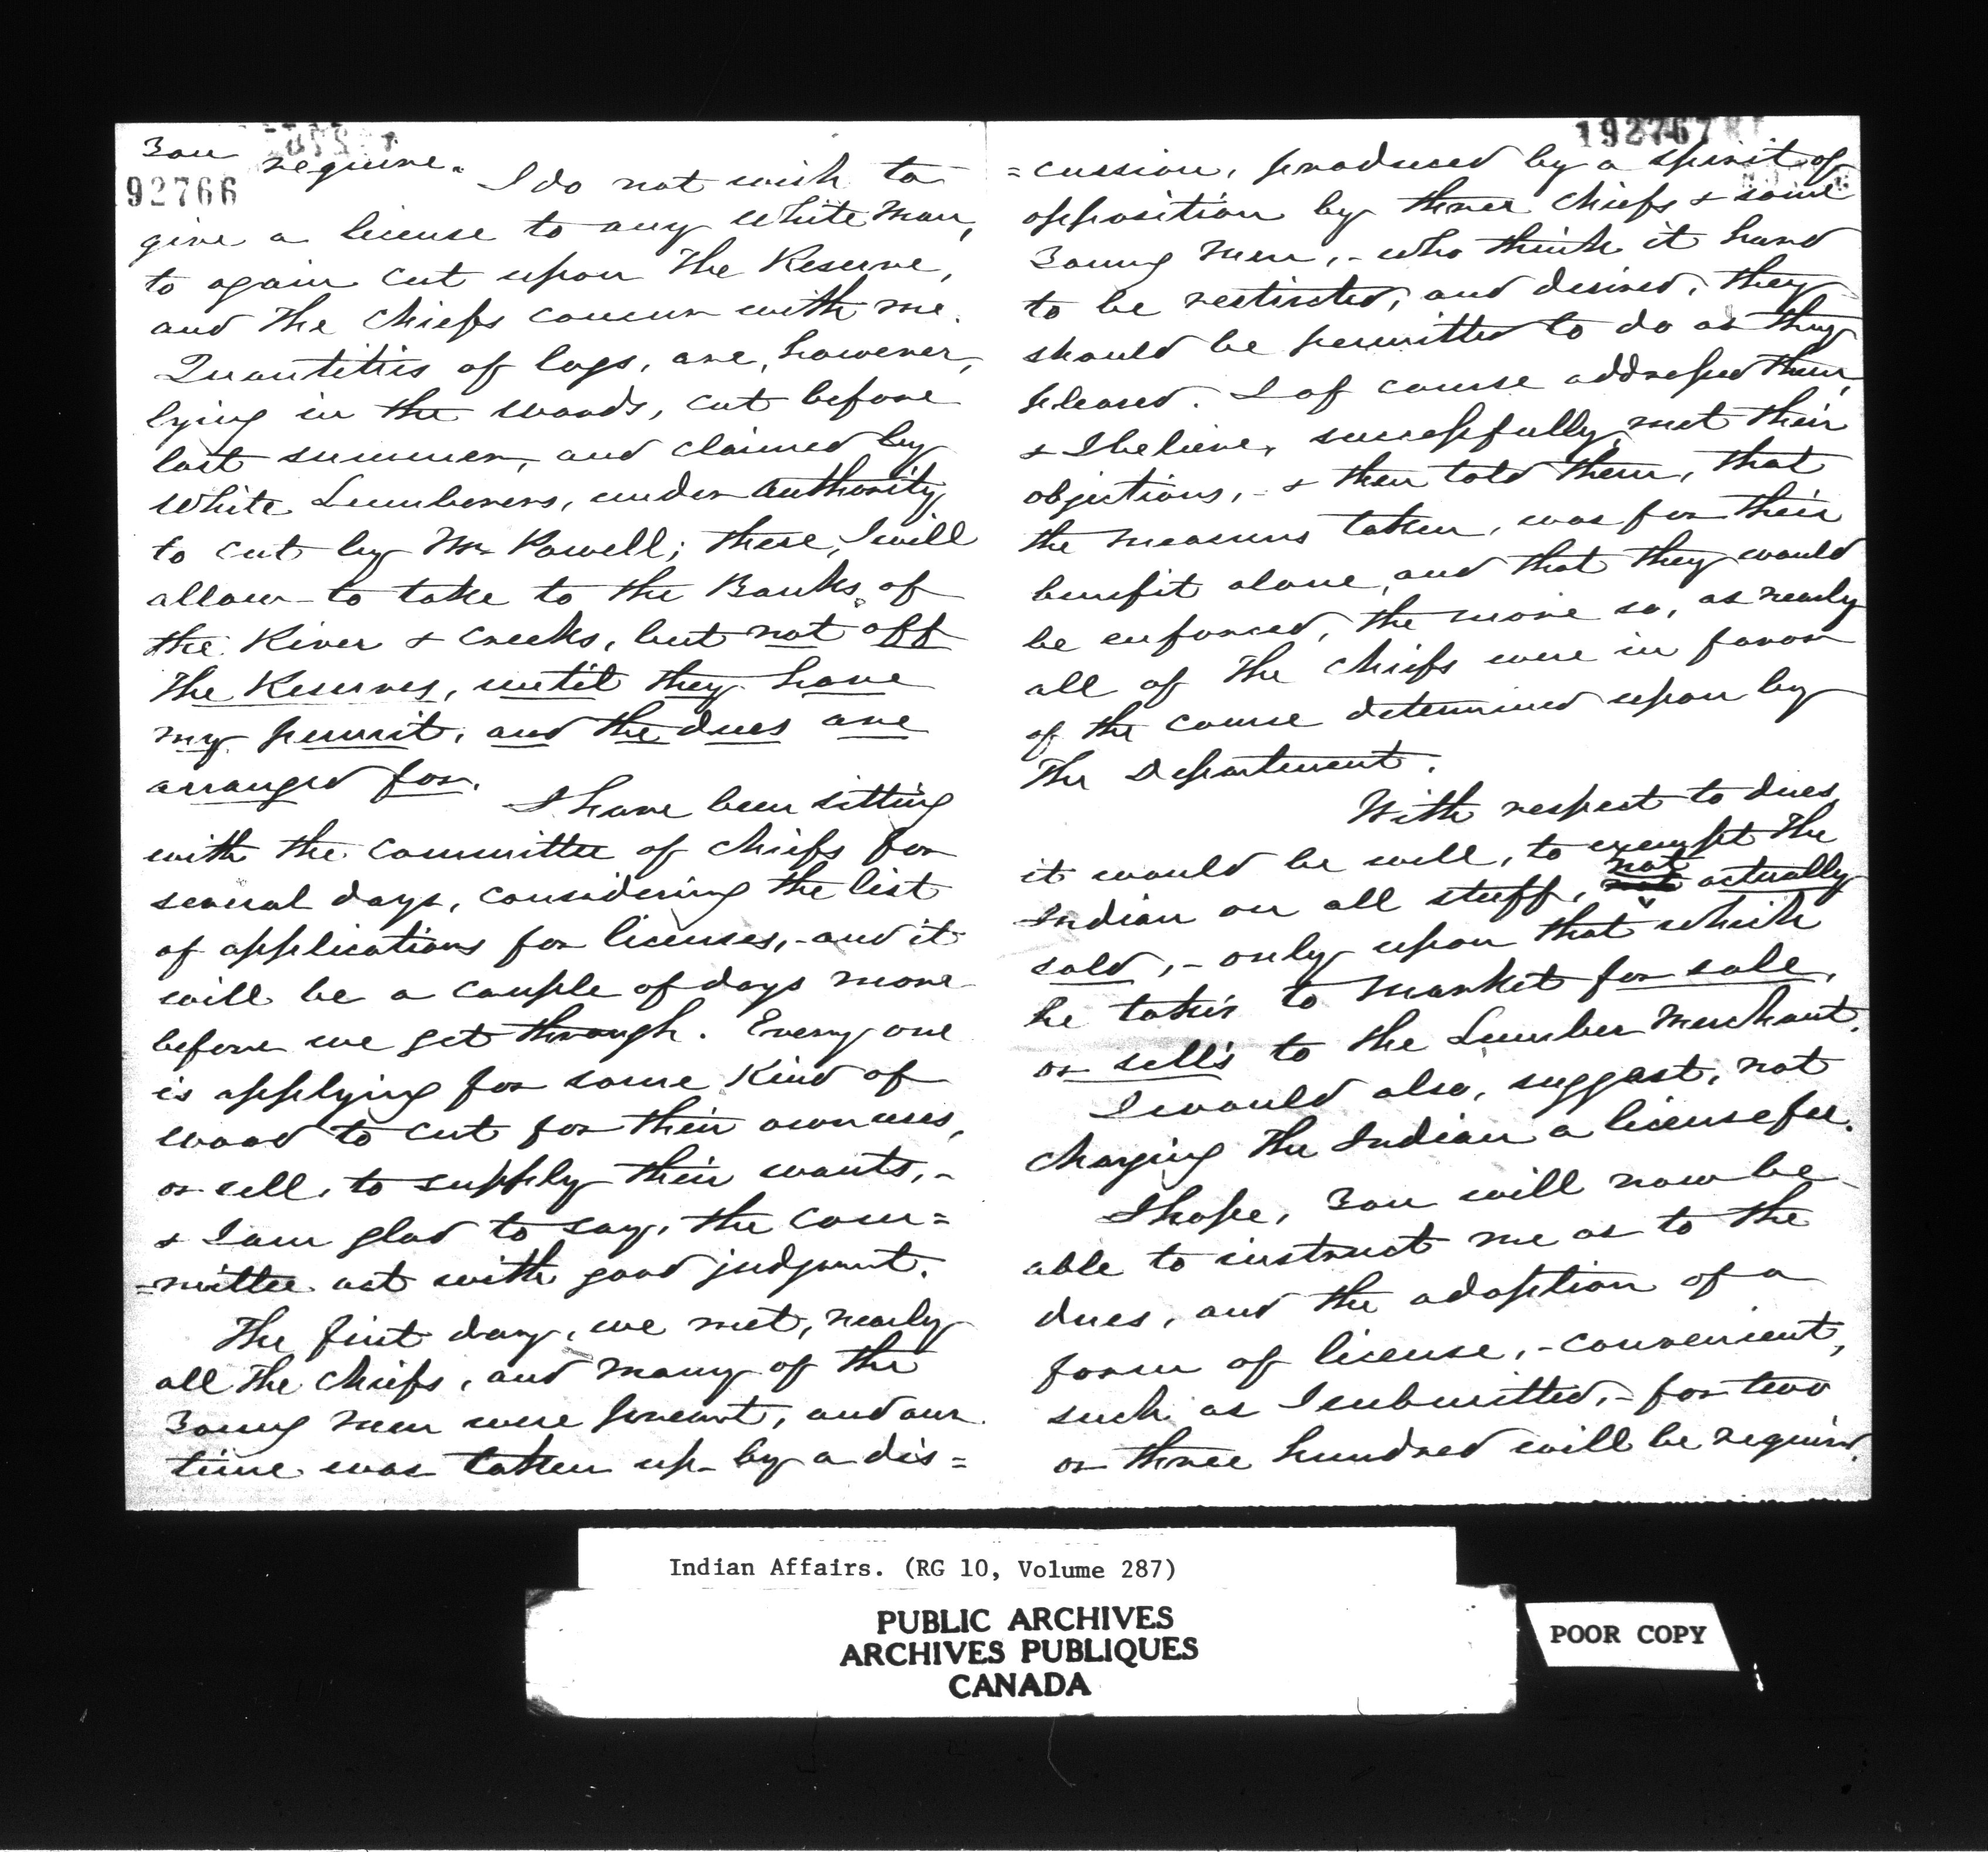 92766
You require. I do not wish to
give a license to any White Man,
to again cut upon the Reserve,
and the Chiefs concur with me.
Quantities of logs, are, however,
lying in the woods, cut before
last summer, and claimed by
White Lumberers, under authority
to cut by Mr Powell; these, I will
allow to take to the Banks of
the River & Creeks, but not off
the Reserves, until they have
my permit, and the dues are
arranged for.
I have been sitting
with the Committee of Chiefs for
several days, considering the list
of applications for licenses,- and it
will be a couple of days more
before we get through. Every one
is applying for some kind of
wood to cut for their own uses,
or sell, to supply their wants,-
& I am glad to say, the Com=
=mittee act with good judgment.
The first day, we met, nearly
all the Chiefs, and many of the
Young men were present, and our
time was taken up by a dis=
192767
=cussion, produced by a spirit of
opposition by three Chiefs & some
Young Men,- who think it hard
to be restricted, and desired, they
should be permitted to do as they
pleased. I of course addressed them,
& I believe, successfully met their
objections,- & then told them, that
the measures taken, was for their
benefit alone, and that they would
be enforced, the more so, as nearly
all of the Chiefs were in favor
of the course determined upon by
the Department.
With respect to dues,
it would be well, to exempt the
Indian on all stuff, not actually
sold,- only upon that which
he takes to market for sale,
or sells to the Lumber Merchant.
I would also, suggest, not
charging the Indian a license fee.
I hope, You will now be
able to instruct me as to the
dues, and the adoption of a
form of license,- convenient,
such as I submitted,- for two
or three hundred will be required.
Indian Affairs. (RG 10, Volume 287)
PUBLIC ARCHIVES
ARCHIVES PUBLIQUES
CANADA
POOR COPY